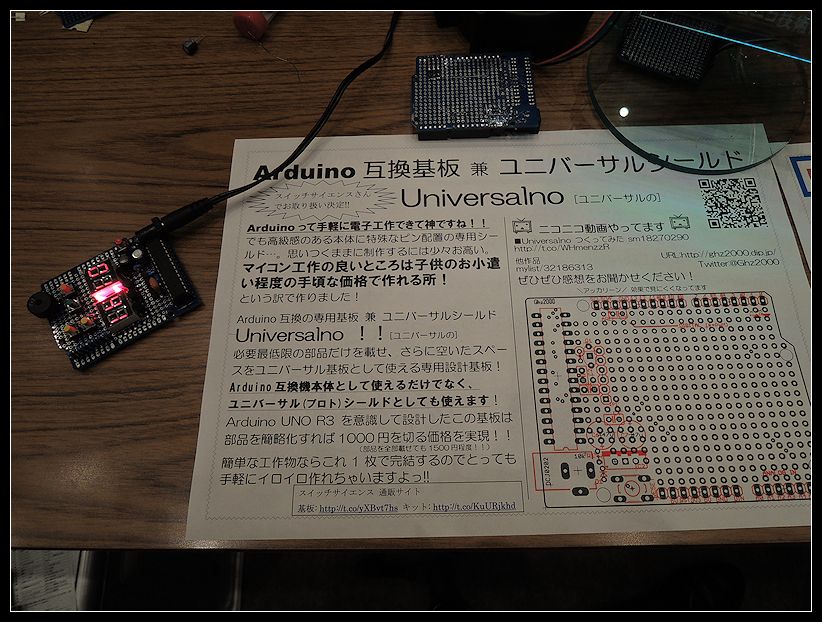 Arduino 互換基板 兼 ユニバーサルシールド
スイッチサイエンスさん
でお取り扱い決定!!
Universalno [ユニバーサルの]
Arduinoって手軽に電子工作できて神ですね！！
でも高級感のある本体に特殊なピン配置の専用シー
ルド…。思いつくままに制作するには少々お高い。
マイコン工作の良いところは子供のお小遣
い程度の手頃な価格で作れる所！
という訳で作りました！
Arduino 互換の専用基板 兼 ユニバーサルシールド
Universalno ！！[ユニバーサルの]
必要最低限の部品だけを載せ、さらに空いたスペー
スをユニバーサル基板として使える専用設計基板！
Arduino互換機本体として使えるだけでなく、
ユニバーサル(プロト)シールドとしても使えます！
Arduino UNO R3 を意識して設計したこの基板は
部品を簡略化すれば1000円を切る価格を実現！！
(部品を全部載せても1500円程度！！)
簡単な工作物ならこれ1枚で完結するのでとっても
手軽にイロイロ作れちゃいますよっ!!
スイッチサイエンス 通販サイト
基板: http://t.co/yXBvt7hs キット: http://t.co/KuURjkhd
ニコニコ動画やってます
■Universalno つくってみた sm18270290
http://t.co/WHmenzzR
他作品
mylist/32186313
URL:http://ghz2000.dip.jp/
Twitter@Ghz2000
ぜひぜひ感想をお聞かせください！
＼アッカリ〜ン／ 効果で見にくくなってます
Ghz2000
10k